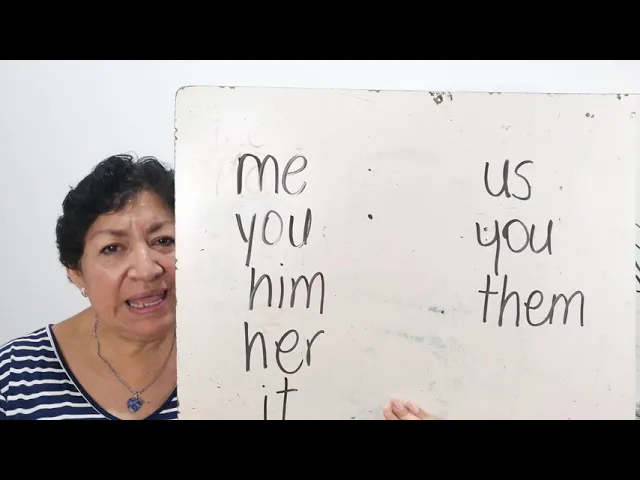 me us
you you
him them
her
it